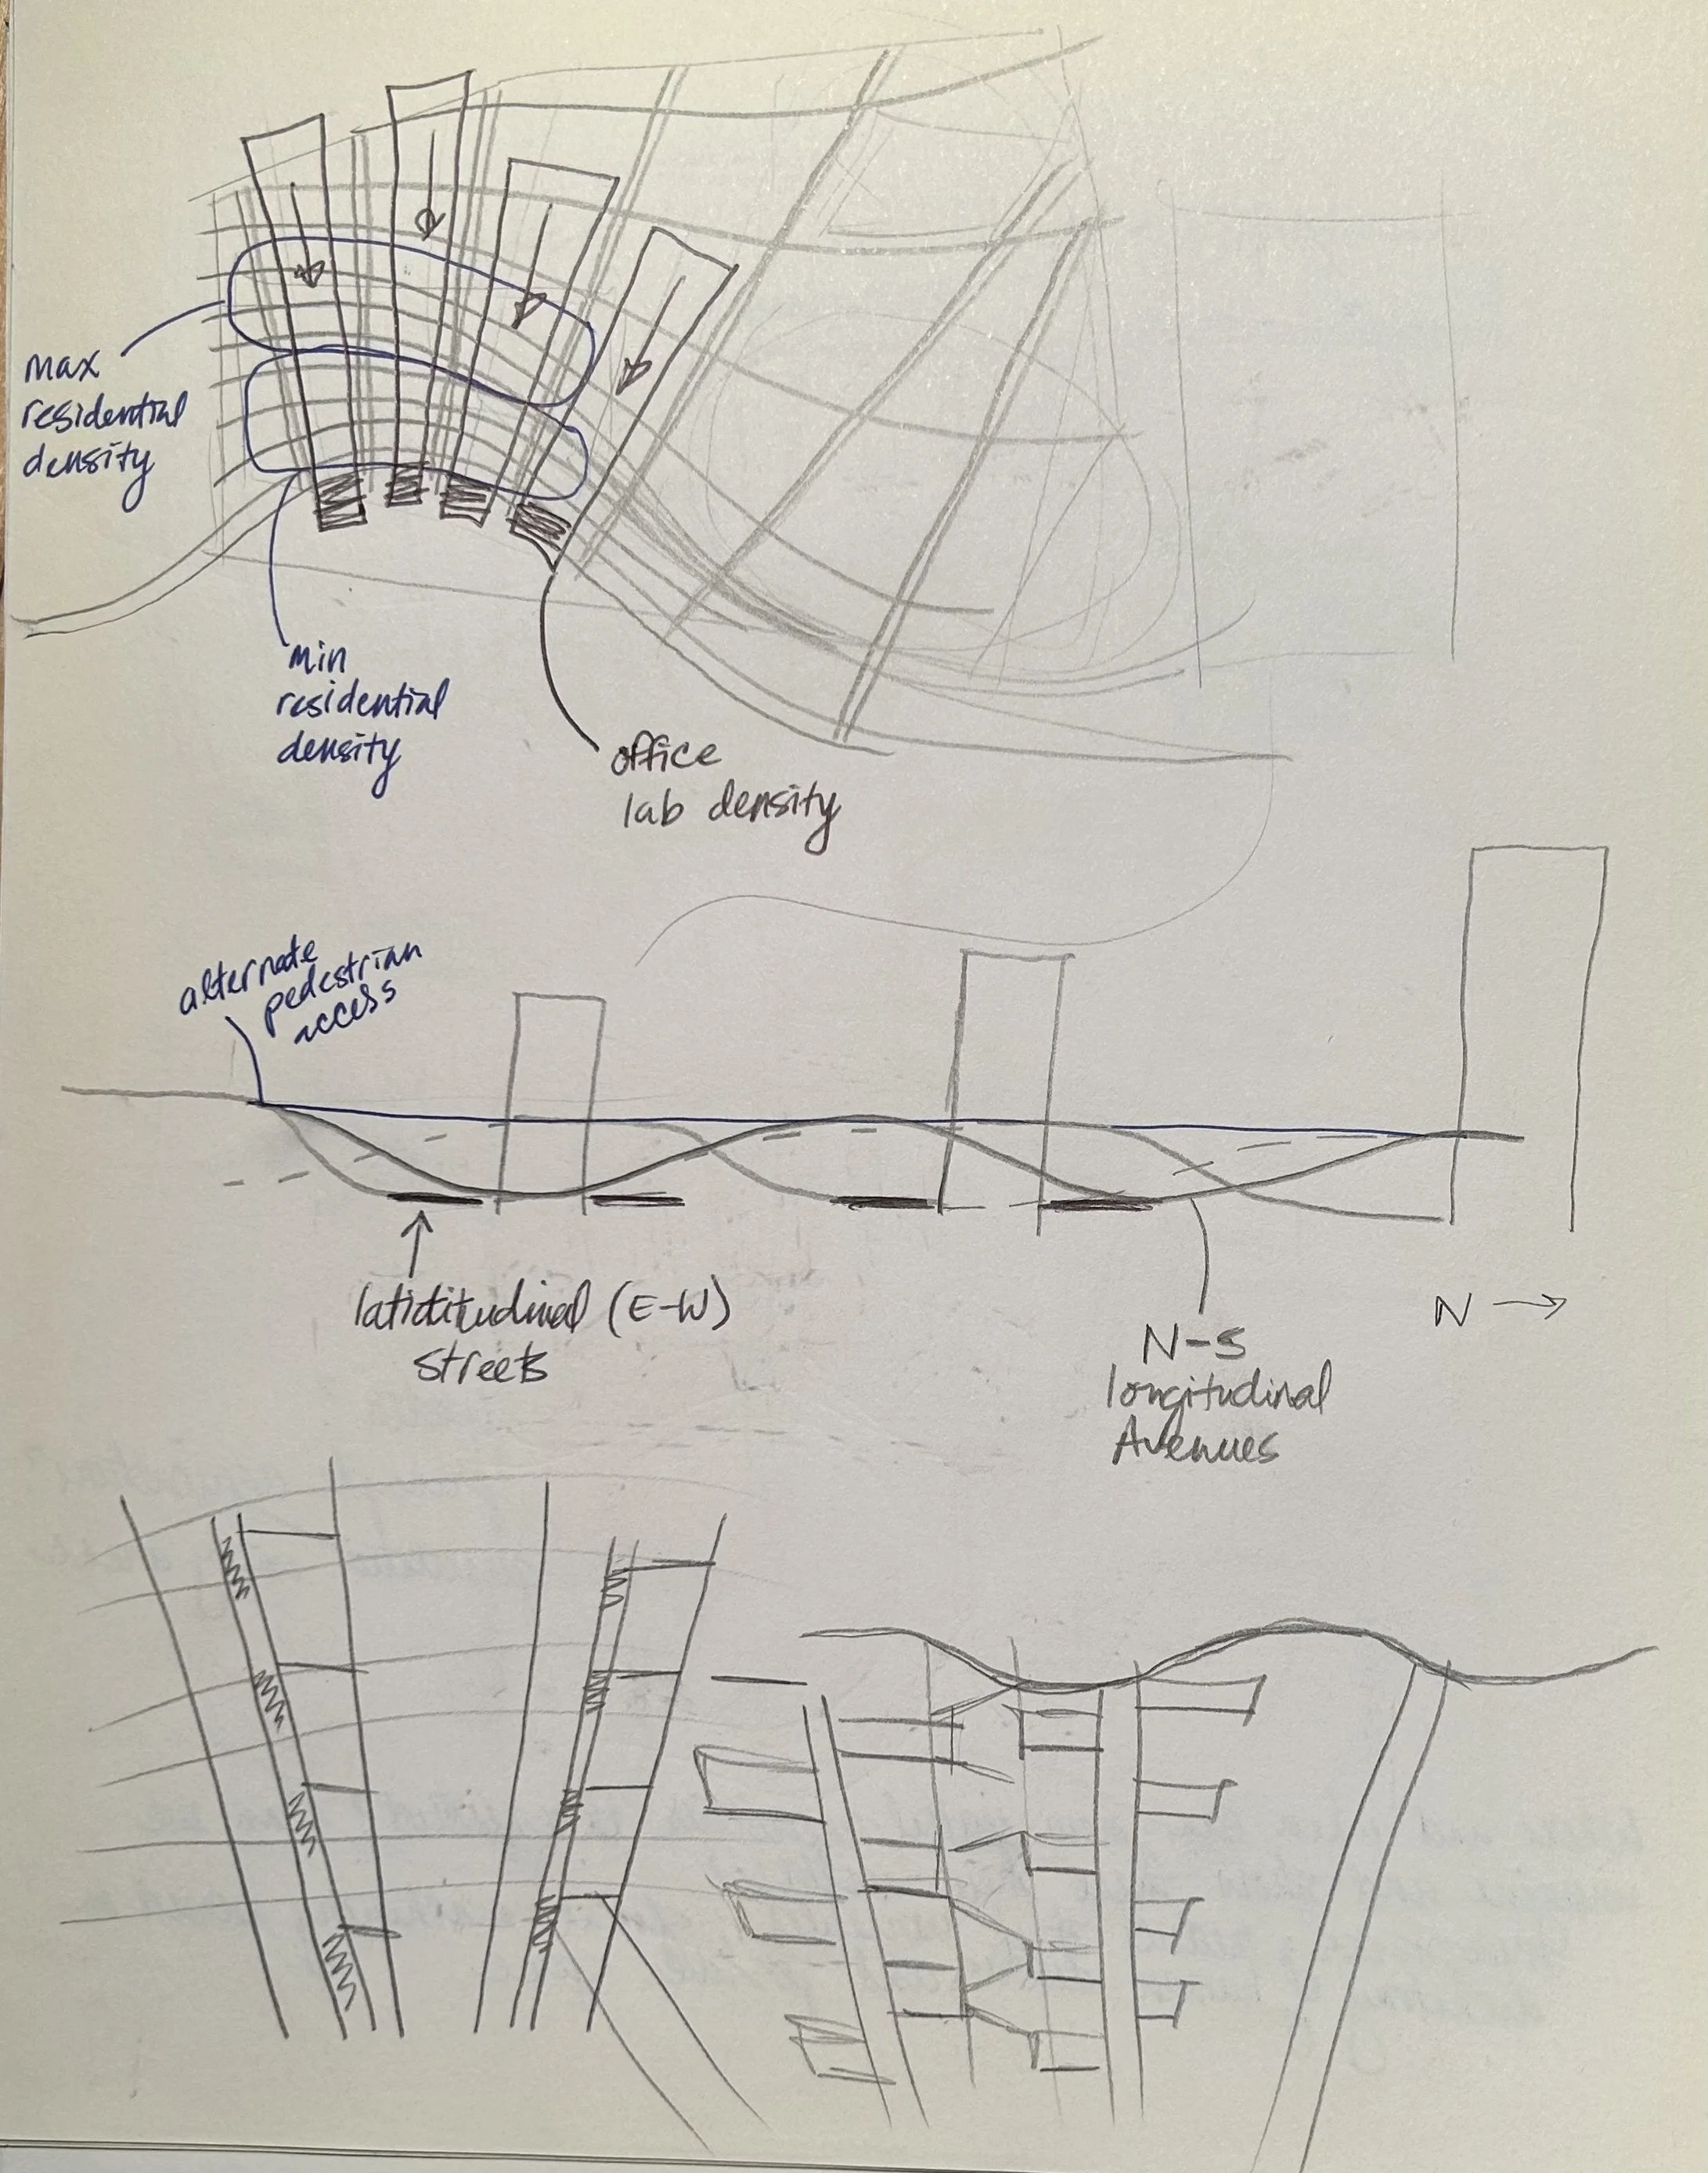 max
residential
density
min
residential
density
office
lab density
alternate
pedestrian
access
latictitudinal (E-W)
streets
N-S
longitudinal
Avenues
N →